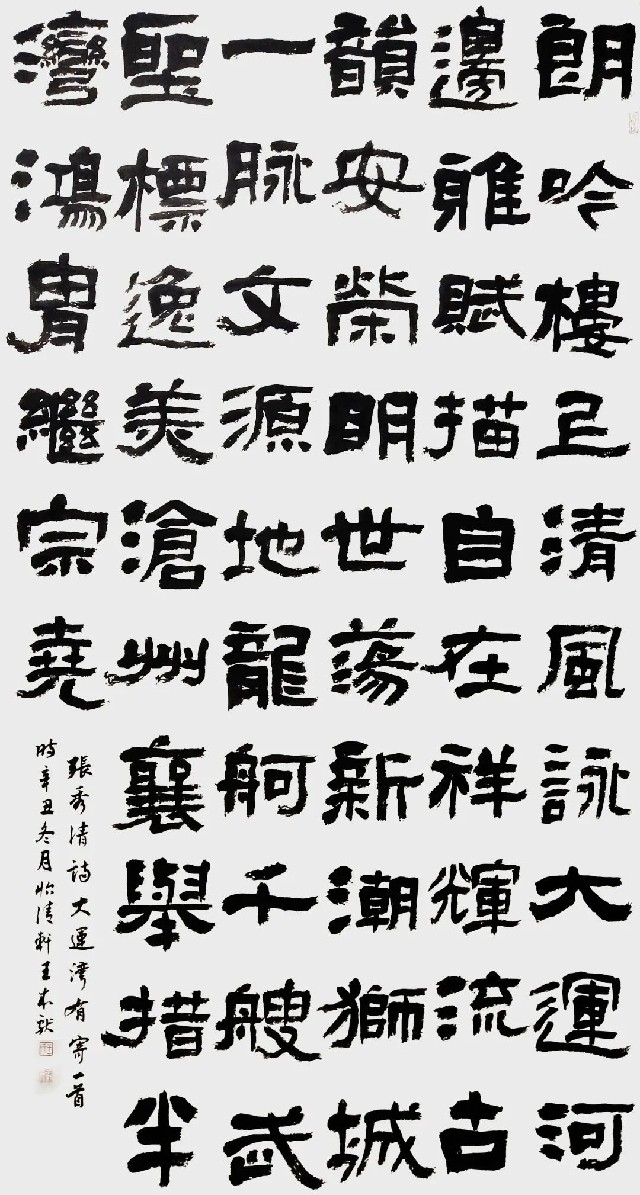 朗吟樓上清風詠大運河
邊雅賦描自在祥輝流古
韻安榮明世蕩新潮獅城
一脉文源地龍舸千艘武
聖標逸美滄州襄舉措半
灣鴻胄繼宗堯
張秀清詩大運灣有寄一首
時辛丑冬月怡清軒王